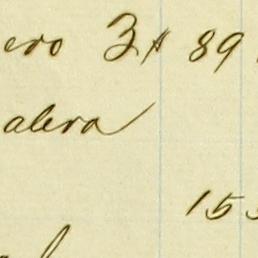 ero 3# 89
alera
153